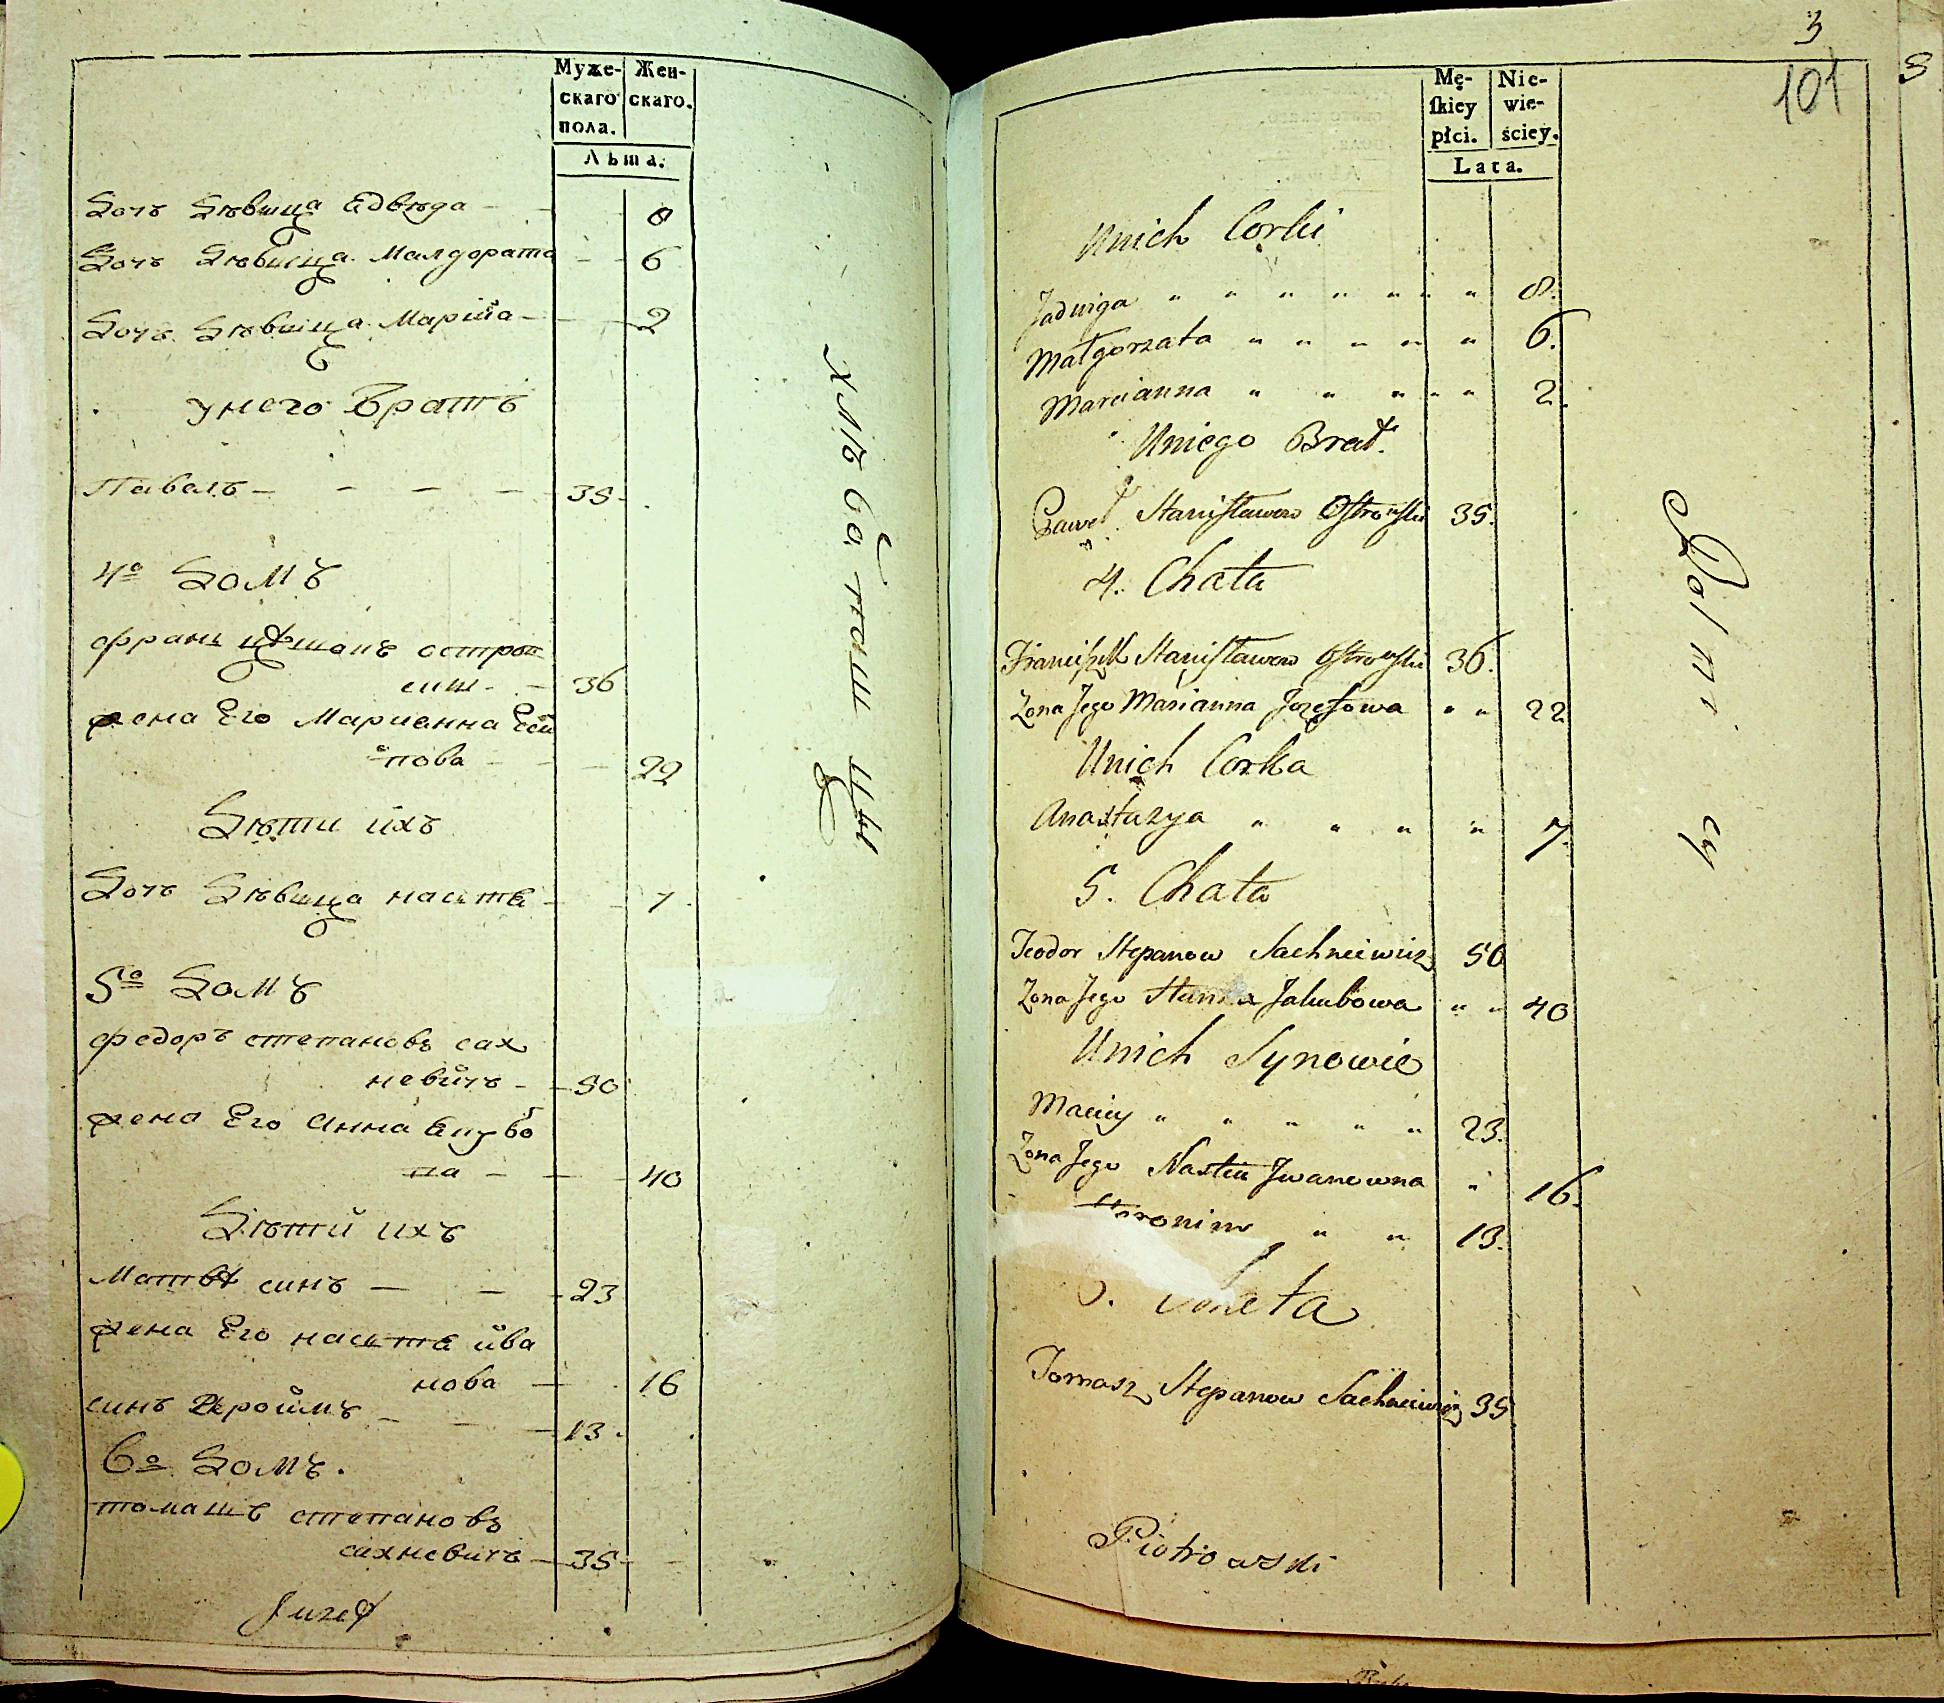 Муже- Жен-
скаго скаго.
пола.
Лѣта.
Дочь девица Едвѣга 8
Дочь Девица Малгората 6
Дочь Девица Марияа 2
у него Братъ
Павалъ 35
4о Домъ
францѣшокъ остров
сиш 36
жена Его Марианна Есй
пова 22
Дѣти ихъ
Дочь Девица настѣ 7
5о Домъ
федоръ степановъ сах
невичъ 50
жена Его Анна Якубо
ва 40
Дѣтй ихъ
Матвѣ синъ 23
жена Его настѣ ива
нова 16
синъ 13
6о Домъ.
томашъ степановъ
сахневичъ 35
Juzef
хлѣбопашцы
3
101
Mę- Nie-
skiey wie-
płci. ściey.
Lata.
Unich Corki
Jadwiga 8.
Małgorzata 6.
Marcianna 2.
Uniego Brat.
Paweł Stanisławow Ostrowski 35.
4. Chata
Franciszek Stanisławow Ostrowski 36.
Zona Jego Marianna Jozefowa 22
Unich Corka
Anastazya 7.
5. Chata
Teodor Stepanow Sachniewicz 50
Zona Jego Hanna Jakubowa 40
Unich Synowie
Maciey 23.
Zona Jego Nastia Iwanowna 16.
Hironim 13.
Chata
Tomasz Stepanow Sachniewicz 35
Piotrowski
Rolnicy